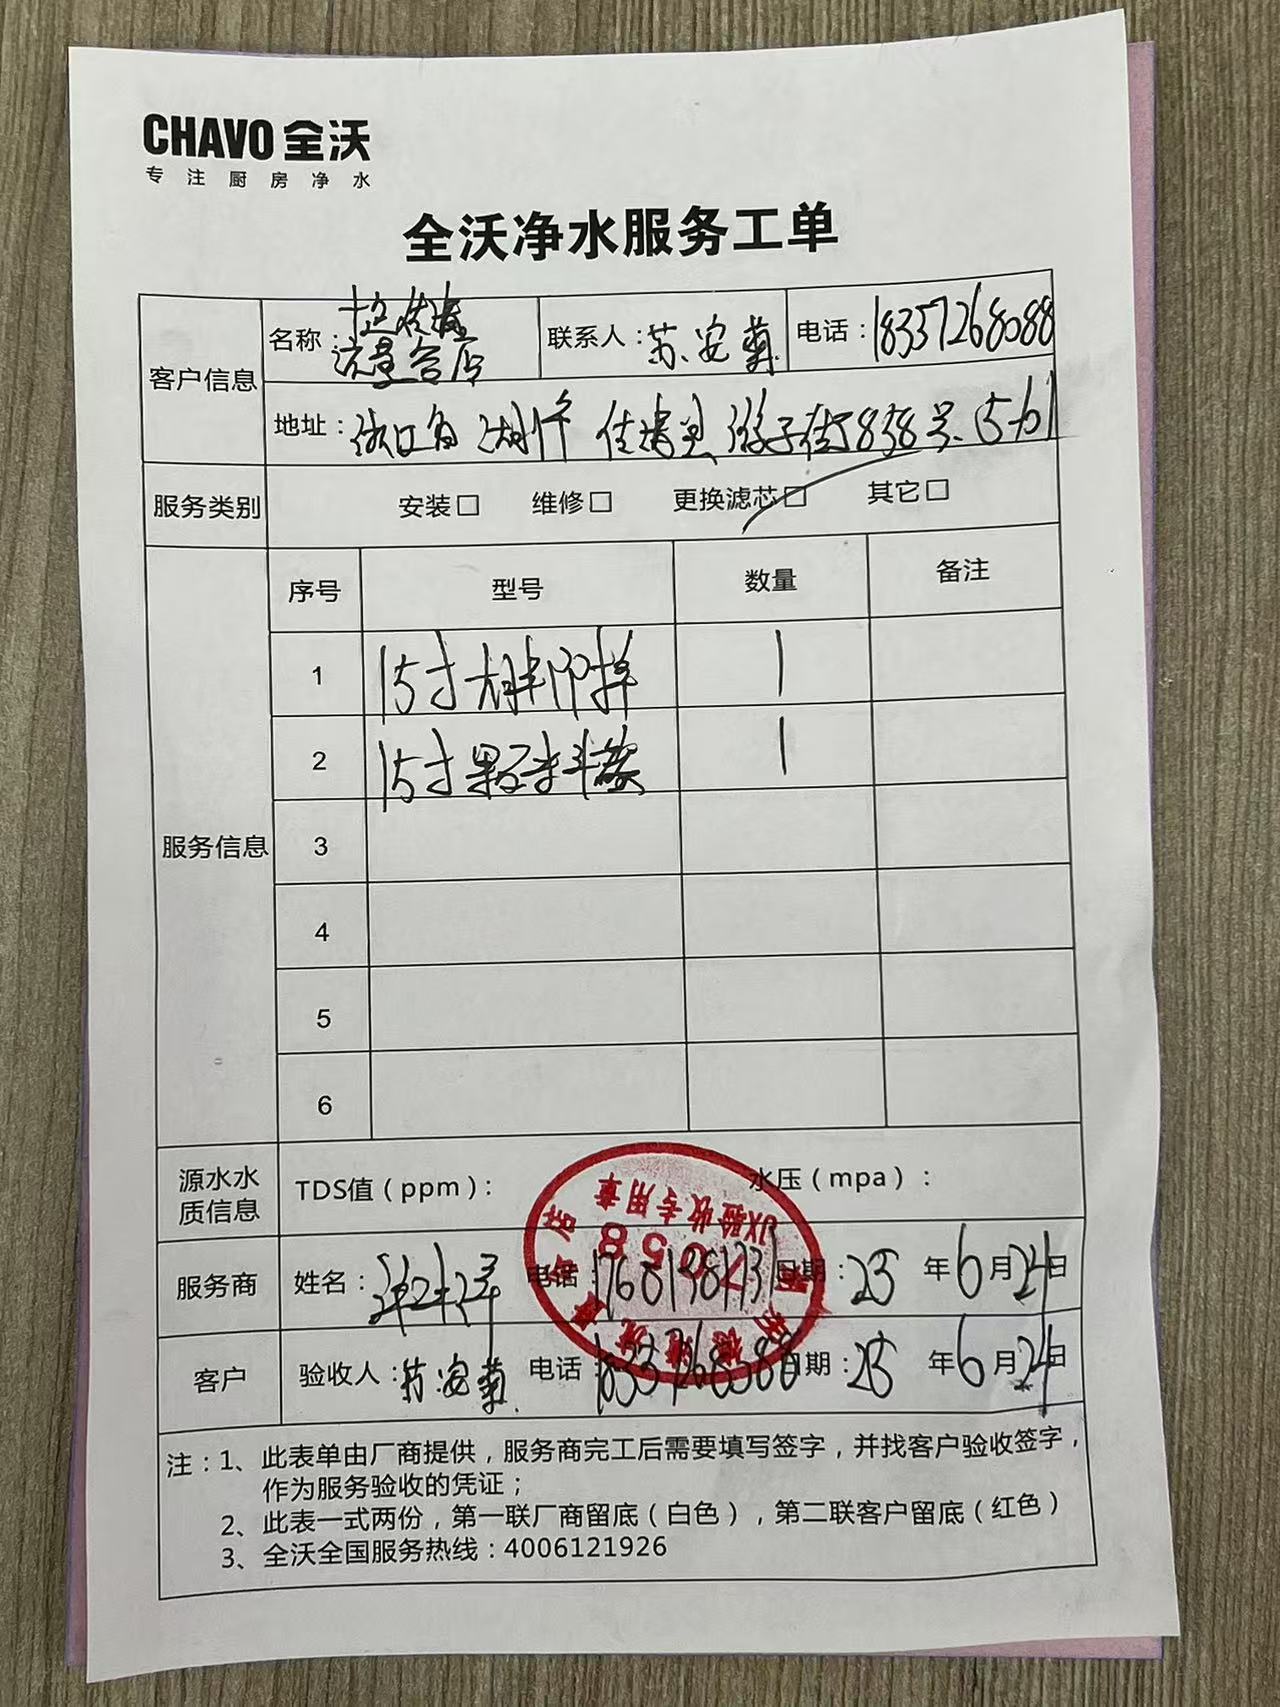 CHAVO 全沃
专注厨房净水
全沃净水服务工单
客户信息
名称：
联系人：苏安菊
电话：18357268088
地址：浙江省湖州市 德清县 游子街838号
服务类别
安装□ 维修□ 更换滤芯□ 其它□
服务信息
序号 型号 数量 备注
1 15寸 PP棉 1
2 15寸 1
3
4
5
6
源水水质信息
TDS值（ppm）： 水压（mpa）：
服务商 姓名： 电话：17681981731 日期：25 年 6 月 24 日
客户 验收人：苏安菊 电话： 日期：25 年 6 月 24 日
JX验收专用章
注：1、此表单由厂商提供，服务商完工后需要填写签字，并找客户验收签字，
作为服务验收的凭证；
2、此表一式两份，第一联厂商留底（白色），第二联客户留底（红色）
3、全沃全国服务热线：4006121926